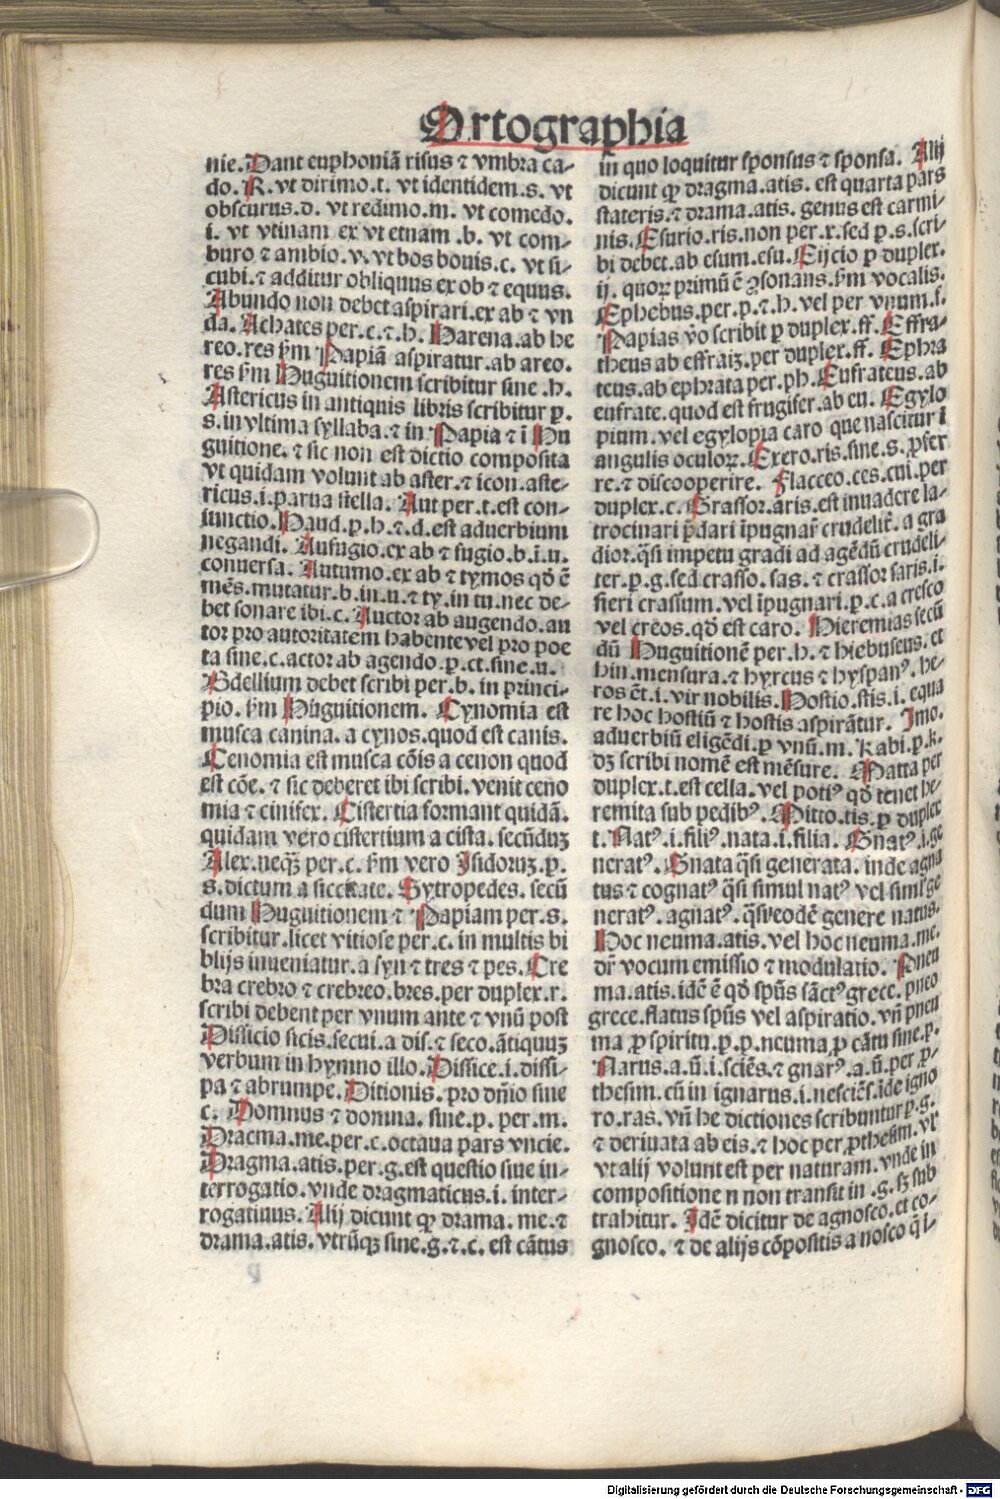 Ortographia
nie. Dant euphoniã risus ⁊ vmbra ca-
do. R. vt dirimo.t. vt identidem.s. vt
obscurus.d. vt redimo.m. vt comedo.
i. vt vtinam ex vt etnam .b. vt com-
buro ⁊ ambio.v. vt bos bouis.c. vt si-
cubi.⁊ additur obliquus ex ob ⁊ equus.
Abundo non debet aspirari.ex ab ⁊ vn
da. Achates per.c.⁊.h. Harena.ab he
reo.res ẜm Papiã aspiratur.ab areo.
res ẜm Huguitionem scribitur sine .h.
Astericus in antiquis libris scribitur ꝑ.
s.in vltima syllaba.⁊ in Papia ⁊ ĩ Hu
guitione.⁊ sic non est dictio composita
vt quidam volunt ab aster.⁊ icon.aste-
ricus.i.parua stella. Aut per.t.est con-
iunctio. Haud.ꝑ.h.⁊.d.est aduerbium
negandi. Aufugio.ex ab ⁊ fugio.b.ĩ.u.
conuersa. Autumo.ex ab ⁊ tymos qđ ẽ
mẽs.mutatur.b.in.u.⁊ ty.in tu.nec de-
bet sonare ibi.c. Auctor ab augendo.au
tor pro autoritatem habente vel pro poe
ta sine.c.actor ab agendo.ꝑ.ct.sine.u.
Bdellium debet scribi per.b. in princi-
pio. ẜm Hũguitionem. Cynomia est
musca canina. a cynos.quod est canis.
Cenomia est musca cõis a cenon quod
est cõe. ⁊ sic deberet ibi scribi. venit ceno
mia ⁊ cinifex. Cistertia formant quidã.
quidam vero cistertium a cista. secũduꝫ
Alex.neqꝫ per.c. ẜm vero Isidoruꝫ.ꝑ.
s.dictum a siccitate. Sytropedes. secũ
dum Huguitionem ⁊ Papiam per.s.
scribitur.licet vitiose per.c. in multis bi
blijs inueniatur.a syn ⁊ tres ⁊ pes. Cre
bra crebro ⁊ crebreo.bres.per duplex.r.
scribi debent per vnum ante ⁊ vnũ post
Dissicio sicis.secui.a dis.⁊ seco.ãtiquuꝫ
verbum in hymno illo. Dissice.i.dissi-
pa ⁊ abrumpe. Ditionis.pro dñio sine
c. Domnus ⁊ domna. sine.p. per.m.
Dracma.me.per.c.octaua pars vncie.
Dragma.atis.per.g.est questio siue in-
terrogatio.vnde dragmaticus.i. inter-
rogatiuus. Alij dicunt qꝫ drama. me.⁊
drama.atis.vtrũqꝫ sine.g.⁊.c. est cãtus
in quo loquitur sponsus ⁊ sponsa. Alij
dicunt qꝫ dragma.atis. est quarta pars
stateris.⁊ drama.atis. genus est carmi-
nis. Esurio.ris.non per.x.sed ꝑ.s.scri-
bi debet.ab esum.esu. Eijcio ꝑ duplex.
ij. quoꝝ primũ ẽ ꝯsonans.ẜm vocalis.
Ephebus.per.p.⁊.h. vel per vnum.f.
Papias v̾o scribit ꝑ duplex.ff. Effra-
theus ab effraiꝫ.per duplex.ff. Ephra
teus.ab ephrata per.ph. Eufrateus.ab
eufrate.quod est frugifer.ab eu. Egylo
pium.vel egylopia caro que nascitur ĩ
angulis oculoꝝ. Exero.ris.sine.s. ꝓfer
re.⁊ discooperire. Flacceo.ces.cui.per
duplex.c. Grassor.aris.est inuadere la-
trocinari p̃dari ĩpugnar̃ crudelit̃. a gra
dior.q̃si impetu gradi ad agẽdũ crudeli-
ter.ꝑ.g.sed crasso.sas.⁊ crassor saris.i.
fieri crassum.vel ĩpugnari.ꝑ.c.a cresco
vel creos.qđ est caro. Hieremias secũ
dũ Huguitionẽ per.h.⁊ hiebuseus.et
hin.mensura.⁊ hyrcus ⁊ hyspanꝰ.he-
ros ẽt.i.vir nobilis. Hostio.stis.i.equa
re hoc hostiũ ⁊ hostis aspirãtur. Imo.
aduerbiũ eligẽdi.ꝑ vnũ.m. Kabi.ꝑ.k.
dꝫ scribi nomẽ est mẽsure. Matta per
duplex.t.est cella.vel potiꝰ qđ tenet he-
remita sub pedibꝰ. Mitto.tis.ꝑ duplex
t. Natꝰ.i.filiꝰ.nata.i.filia. Gnatꝰ.i.ge
neratꝰ. Gnata q̃si generata. inde agna
tus ⁊ cognatꝰ q̃si simul natꝰ vel simĩ ge
neratꝰ. agnatꝰ. q̃si eodẽ genere natus.
Hoc neuma.atis.vel hoc neuma.me.
dr̃ vocum emissio ⁊ modulatio. Pneu
ma.atis.idẽ ẽ qđ spũs sãctꝰ grece. pneo
grece.flatus spũs vel aspiratio.vñ pneu
ma ꝓ spiritu.ꝑ.p.neuma ꝓ cãtu sine.p.
Narus.a.ũ.i.sciẽs.⁊ gnarꝰ.a.ũ.per ꝓ-
thesim. cũ in ignarus.i.nesciẽs.ide igno
ro.ras. vñ he dictiones scribuntur ꝑ.g.
⁊ deriuata ab eis.⁊ hoc per.ꝓthesim.vł
vt alij volunt est per naturam.vnde in
compositione n non transit in .g.sꝫ sub
trahitur. Idẽ dicitur de agnosco.et co-
gnosco. ⁊ de alijs cõpositis a nosco q̃ l-
Digitalisierung gefördert durch die Deutsche Forschungsgemeinschaft - DFG